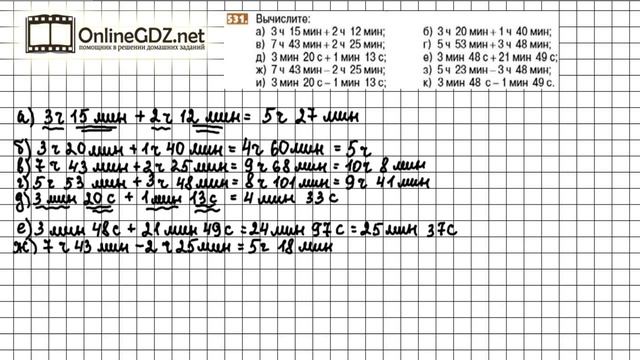 OnlineGDZ.net
помощник в решении домашних заданий
531. Вычислите:
а) 3 ч 15 мин + 2 ч 12 мин; б) 3 ч 20 мин + 1 ч 40 мин;
в) 7 ч 43 мин + 2 ч 25 мин; г) 5 ч 53 мин + 3 ч 48 мин;
д) 3 мин 20 с + 1 мин 13 с; е) 3 мин 48 с + 21 мин 49 с;
ж) 7 ч 43 мин – 2 ч 25 мин; з) 5 ч 23 мин – 3 ч 48 мин;
и) 3 мин 20 с – 1 мин 13 с; к) 3 мин 48 с – 1 мин 49 с.
а) 3ч 15 мин + 2ч 12 мин = 5ч 27 мин
б) 3ч 20 мин + 1ч 40 мин = 4ч 60 мин = 5ч
в) 7ч 43 мин + 2ч 25 мин = 9ч 68 мин = 10ч 8 мин
г) 5ч 53 мин + 3ч 48 мин = 8ч 101 мин = 9ч 41 мин
д) 3 мин 20с + 1 мин 13с = 4 мин 33с
е) 3 мин 48с + 21 мин 49с = 24 мин 97с = 25 мин 37с
ж) 7ч 43 мин – 2ч 25 мин = 5ч 18 мин